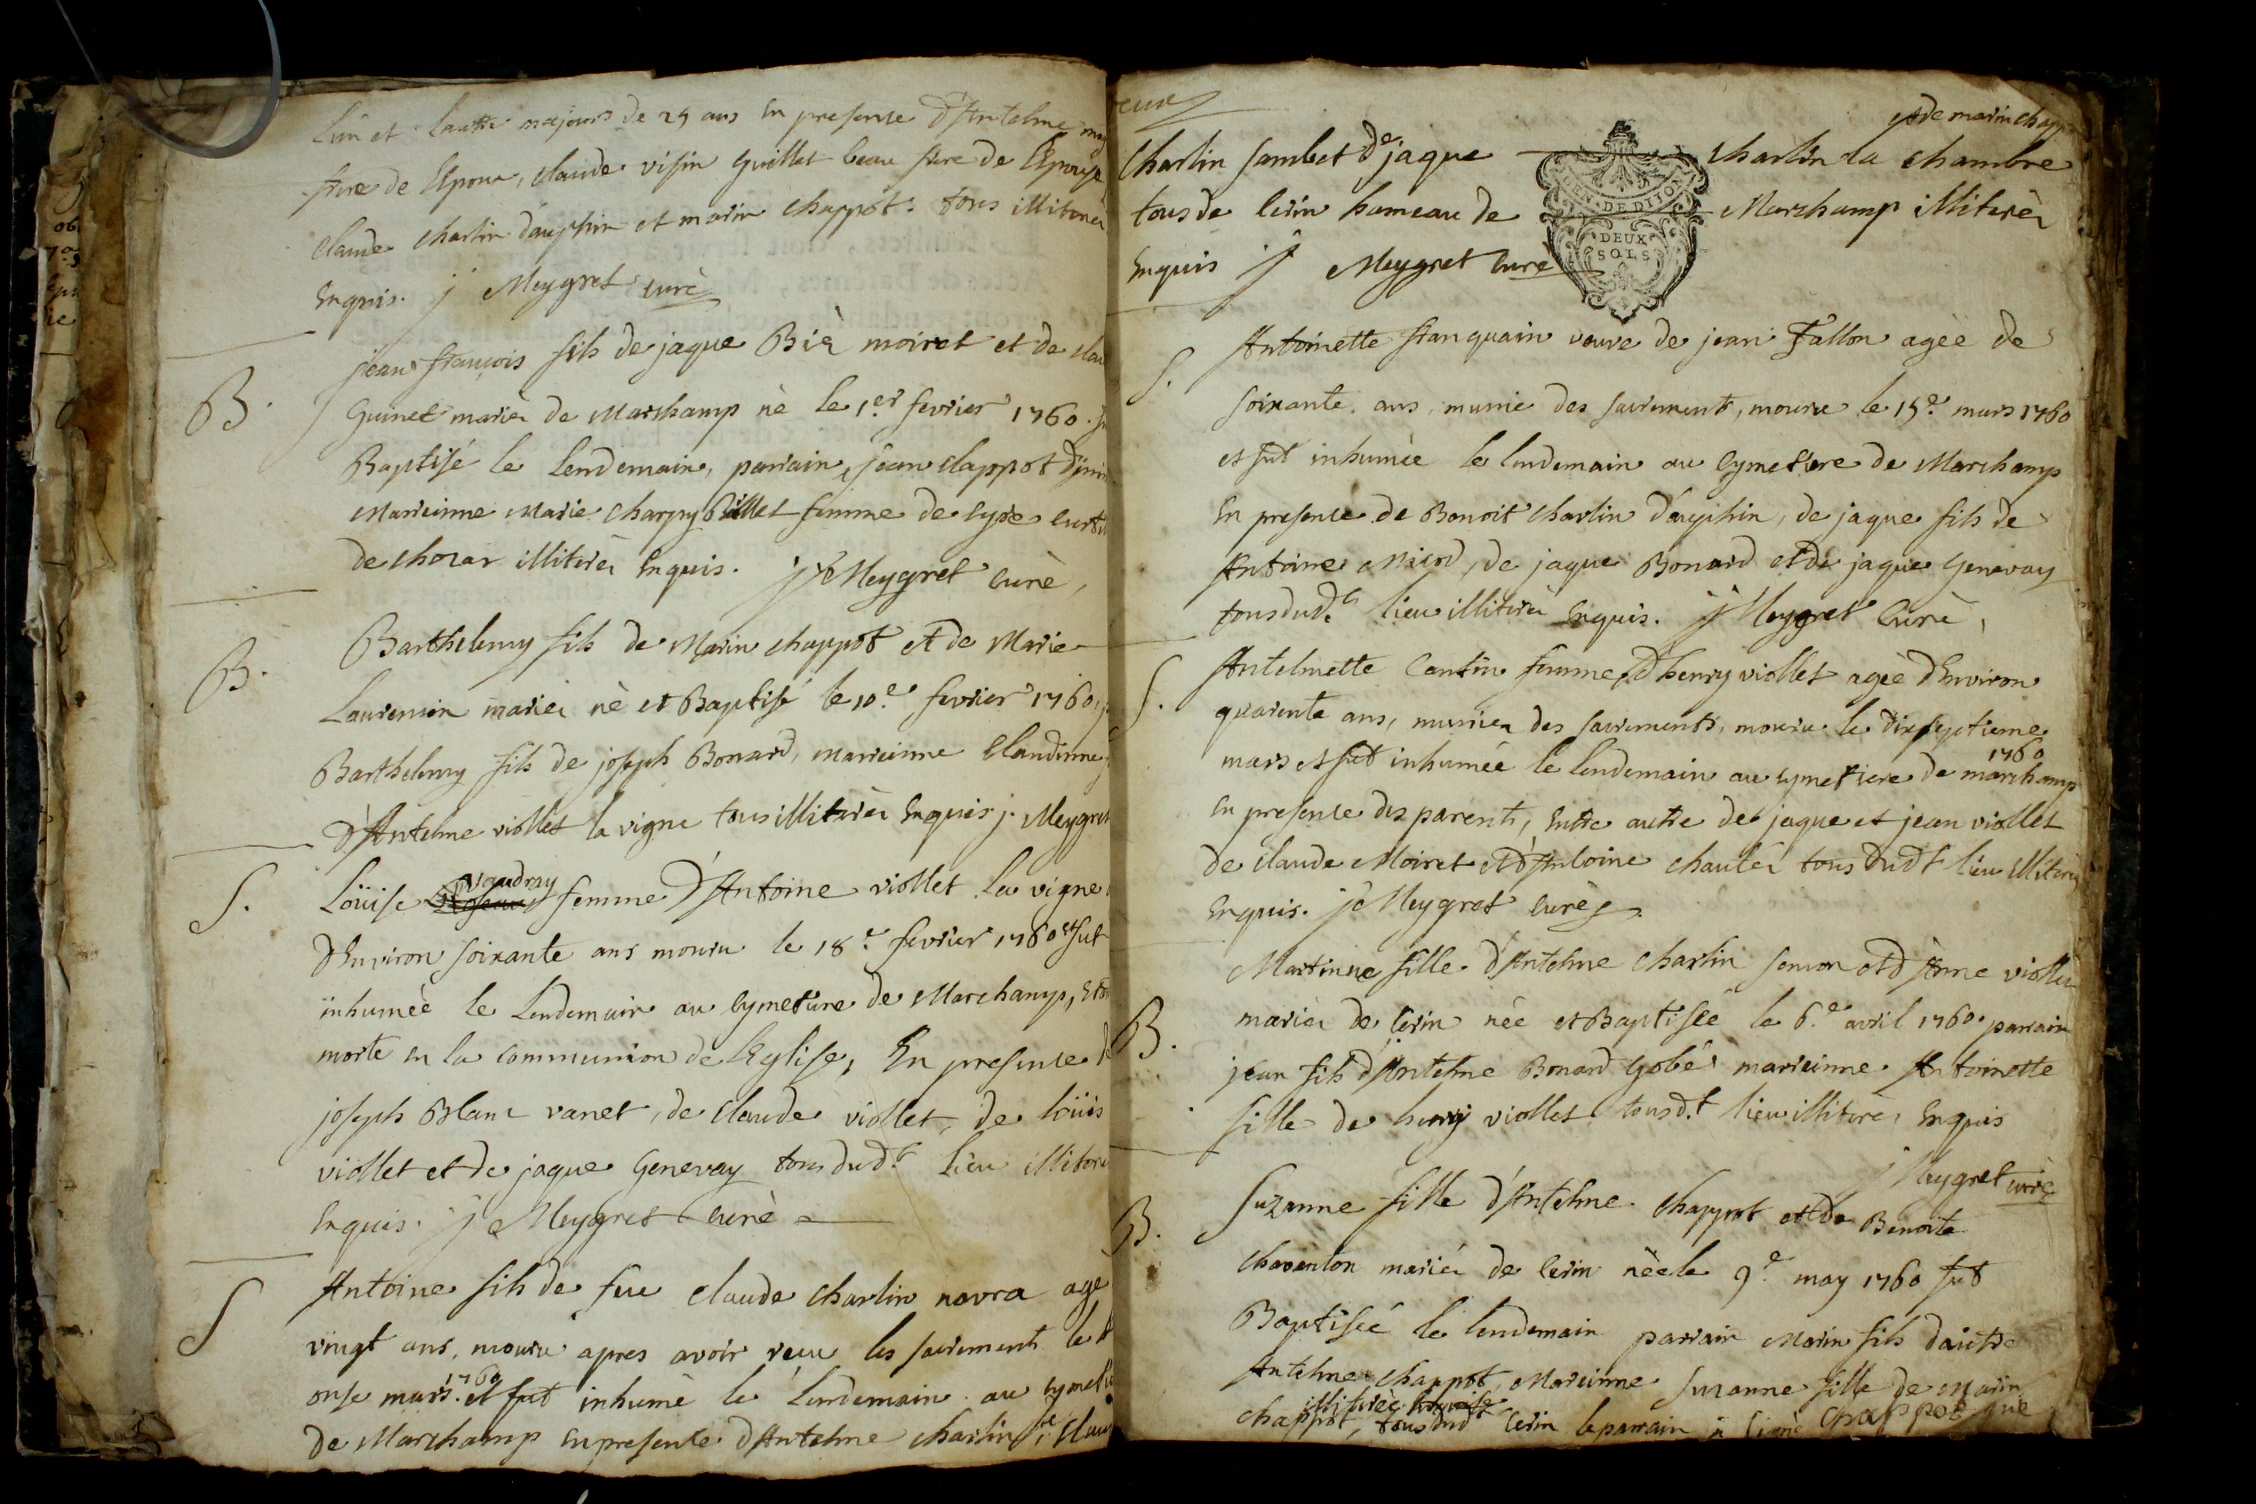 L'un et l'autre majeurs de 25 ans En presense d'Antelme
frere de L'Epoux, claude visin Guillet beau frere de L'Epouse
claude charlin dauphin et marin chappot. tous illiterés
Enquis. j Meygret curè
B.
jean françois fils de jaque Biè moiret et de
Guinet mariès de Marchamp nè le 1.er fevrier 1760.
Baptisé le lendemain, parrain, jean clappot
Marreinne Marie charpy Billet femme de
de chozar illiterès Enquis. j Meygret curè,
B.
Barthelemy fils de Marin chappot et de Marie
Laurencin mariès nè et Baptisé le 10.e fevrier 1760,
Barthelemy fils de joseph Bonard, marreinne Claudinne
d'Antelme viollet la vigne tous illiterès Enquis j. Meygret
S.
Loüise vaudray femme d'Antoine viollet la vigne
d'Environ soixante ans mouru le 18.e fevrier 1760 et fut
inhumèe le Lendemain au cymetiere de Marchamp,
morte en la communion de l'Eglise, En presense de
joseph Blanc vanet, de claude viollet, de loüis
viollet et de jaque Genevay tous dud.t lieu illiterès
Enquis. j Meygret curè
S
Antoine fils de feu claude charlin navra agè
vingt ans, mouru apres avoir reçu les sacrements le
onse mars 1760 et fut inhumè le Lendemain au cymetiere
de Marchamp En presense d'Antelme charlin,
Charlin sambet de jaque charlin la chambre
et de marin chappot
tous de cerin hameau de Marchamp illiterès
Enquis j Meygret curè
GEN. DE DIJON
DEUX
SOLS
S.
Antoinette franquain veuve de jean Fallon agèe de
soixante ans, munie des sacrements, mouru le 15.e mars 1760
et fut inhumèe le lendemain au cymetiere de Marchamp
En presense de Benoit charlin dauphin, de jaque fils de
Antoine Micod, de jaque Bonard et de jaque Genevay
tous dud.t lieu illiterès Enquis. j Meygret Curè,
S.
Antelmette Cantin femme d'henry viollet agèe d'Environ
quarente ans, munies des sacrements, mouru le dixseptieme
mars 1760 et fut inhumée le lendemain au cymetiere de marchamp
En presense des parents, Entre autre de jaque et jean viollet
de claude Moiret et d'Antoine chanlés tous dud.t lieu illiterès
Enquis. j Meygret curè
B.
Martinne fille d'Antelme charlin semon et d'Anne viollet
mariès de cerin nèe et Baptisèe le 6.e avril 1760. parrain
jean fils d'Antelme Bonard Gobé marreinne Antoinette
fille de henry viollet tous d.t lieu illiterès Enquis
j Meygret curè
B.
Suzanne fille d'Antelme Chappot et de Benoite
chaventon mariés de Cerin nèe le 9.e may 1760 fut
Baptisèe le lendemain parrain Marin fils d'autre
Antelme chappot, Marreinne Suzanne fille de Marin
chappot, illiterès tous dud.t Cerin le parrain à signè Chappot